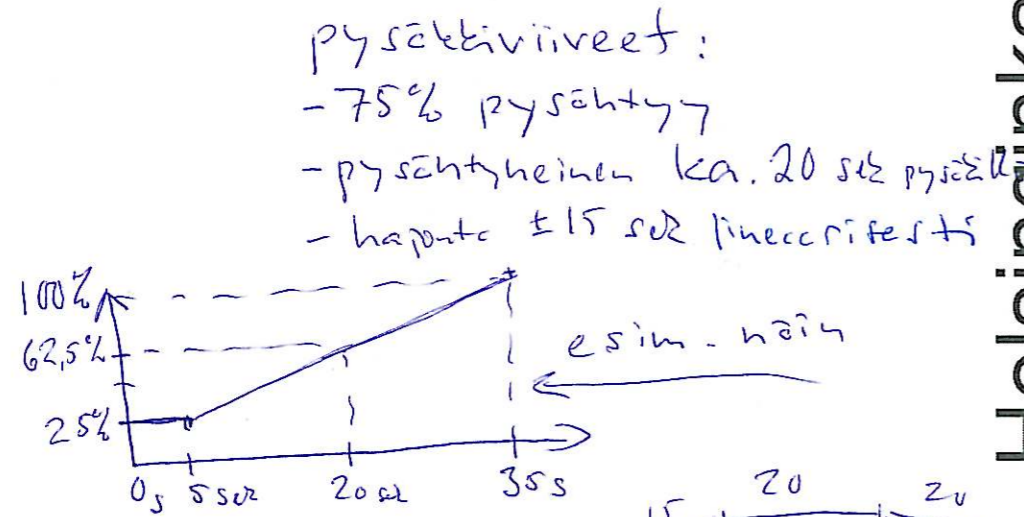 pysäkkiviiveet:
- 75% pysähtyy
- pysähtyneinen ka. 20 sek pysäkk
- hajonta ±15 sek lineaarisesti
100%
62,5%
esim. näin
25%
0s 5sek 20sek 35s
15 20 20